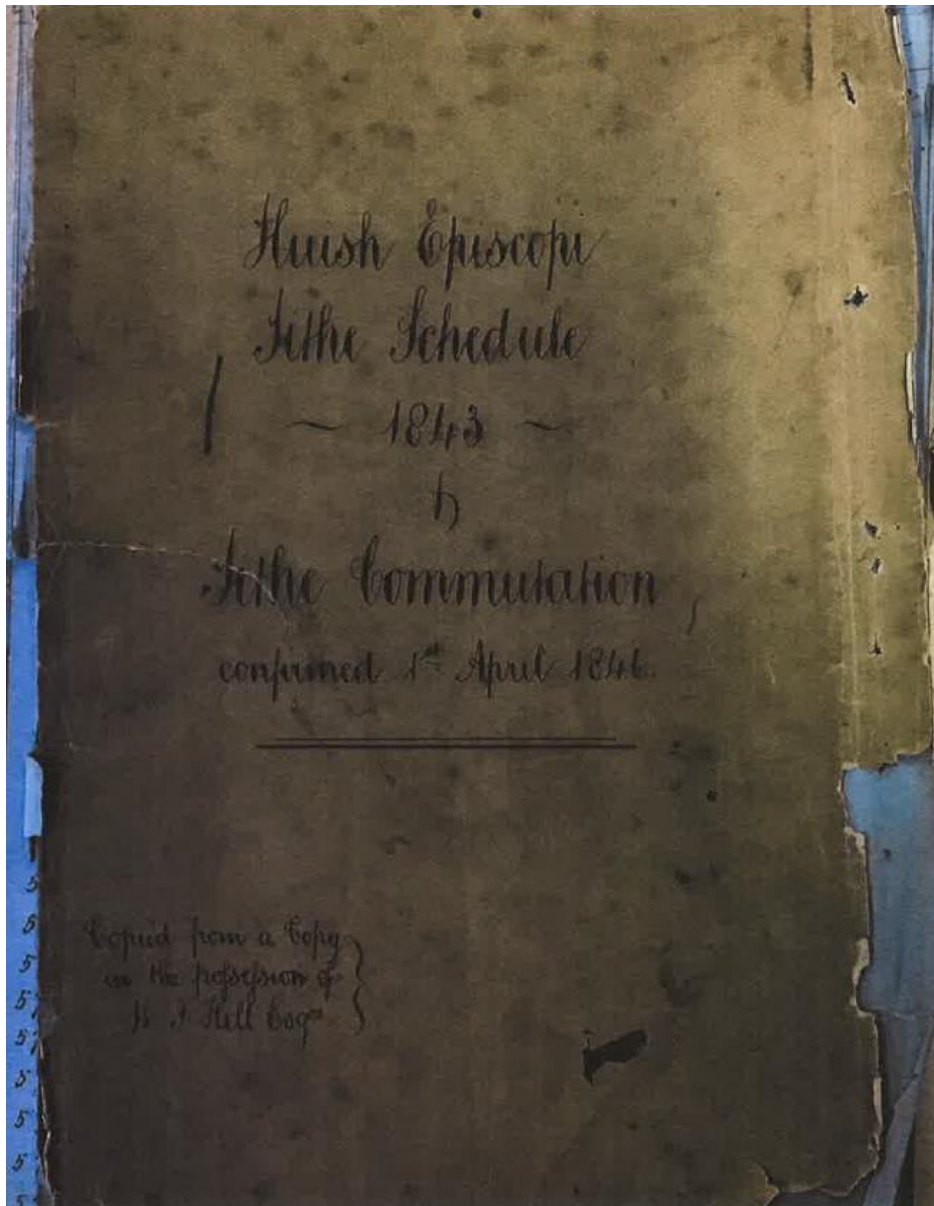 Huish Episcopi
Tithe Schedule
~ 1843 ~
Tithe Commutation
confirmed 1st April 1846.
Copied from a Copy
in the possession of
Hill Esqre
5
5
5
5
5
5
5
5
5